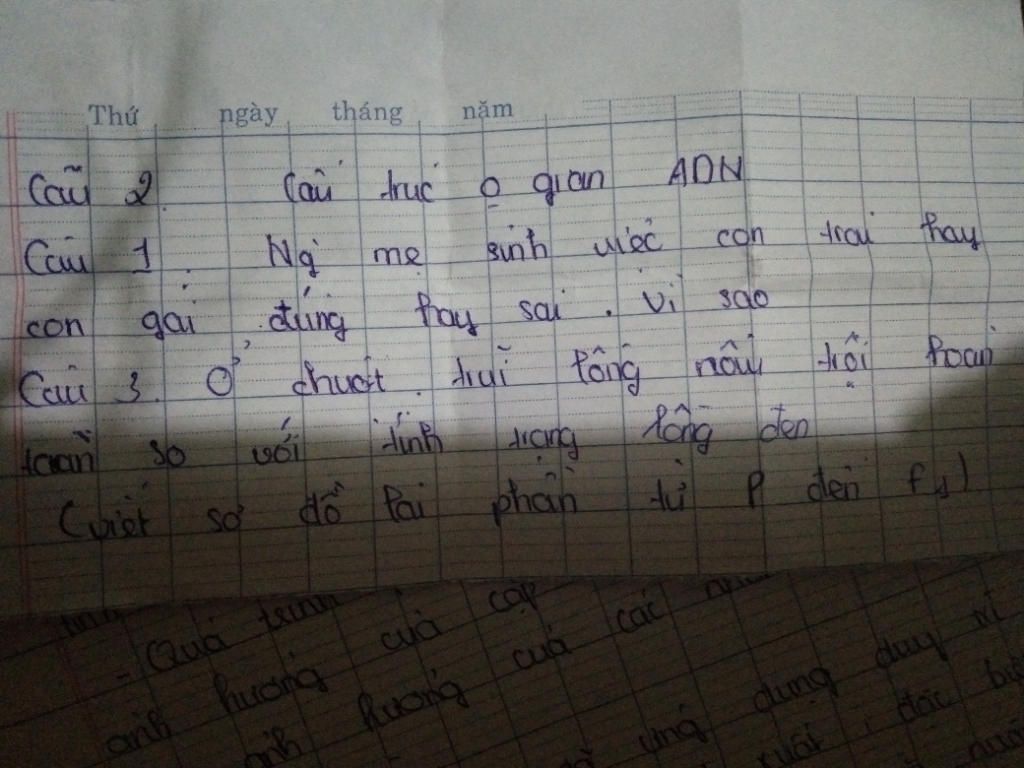 Thứ ngày tháng năm
Câu 2. Cấu trúc o gian ADN
Câu 1. Ng mẹ sinh việc con trai hay
con gái đúng hay sai. Vì sao
Câu 3. Ở chuột. trui lông nâu trội hoàn
toàn so với tính trạng lông đen
(viết sơ đồ lai phân từ P đến F1)
- Quá trình
ảnh hưởng của cặp
ảnh hưởng của các
ứng dụng duy